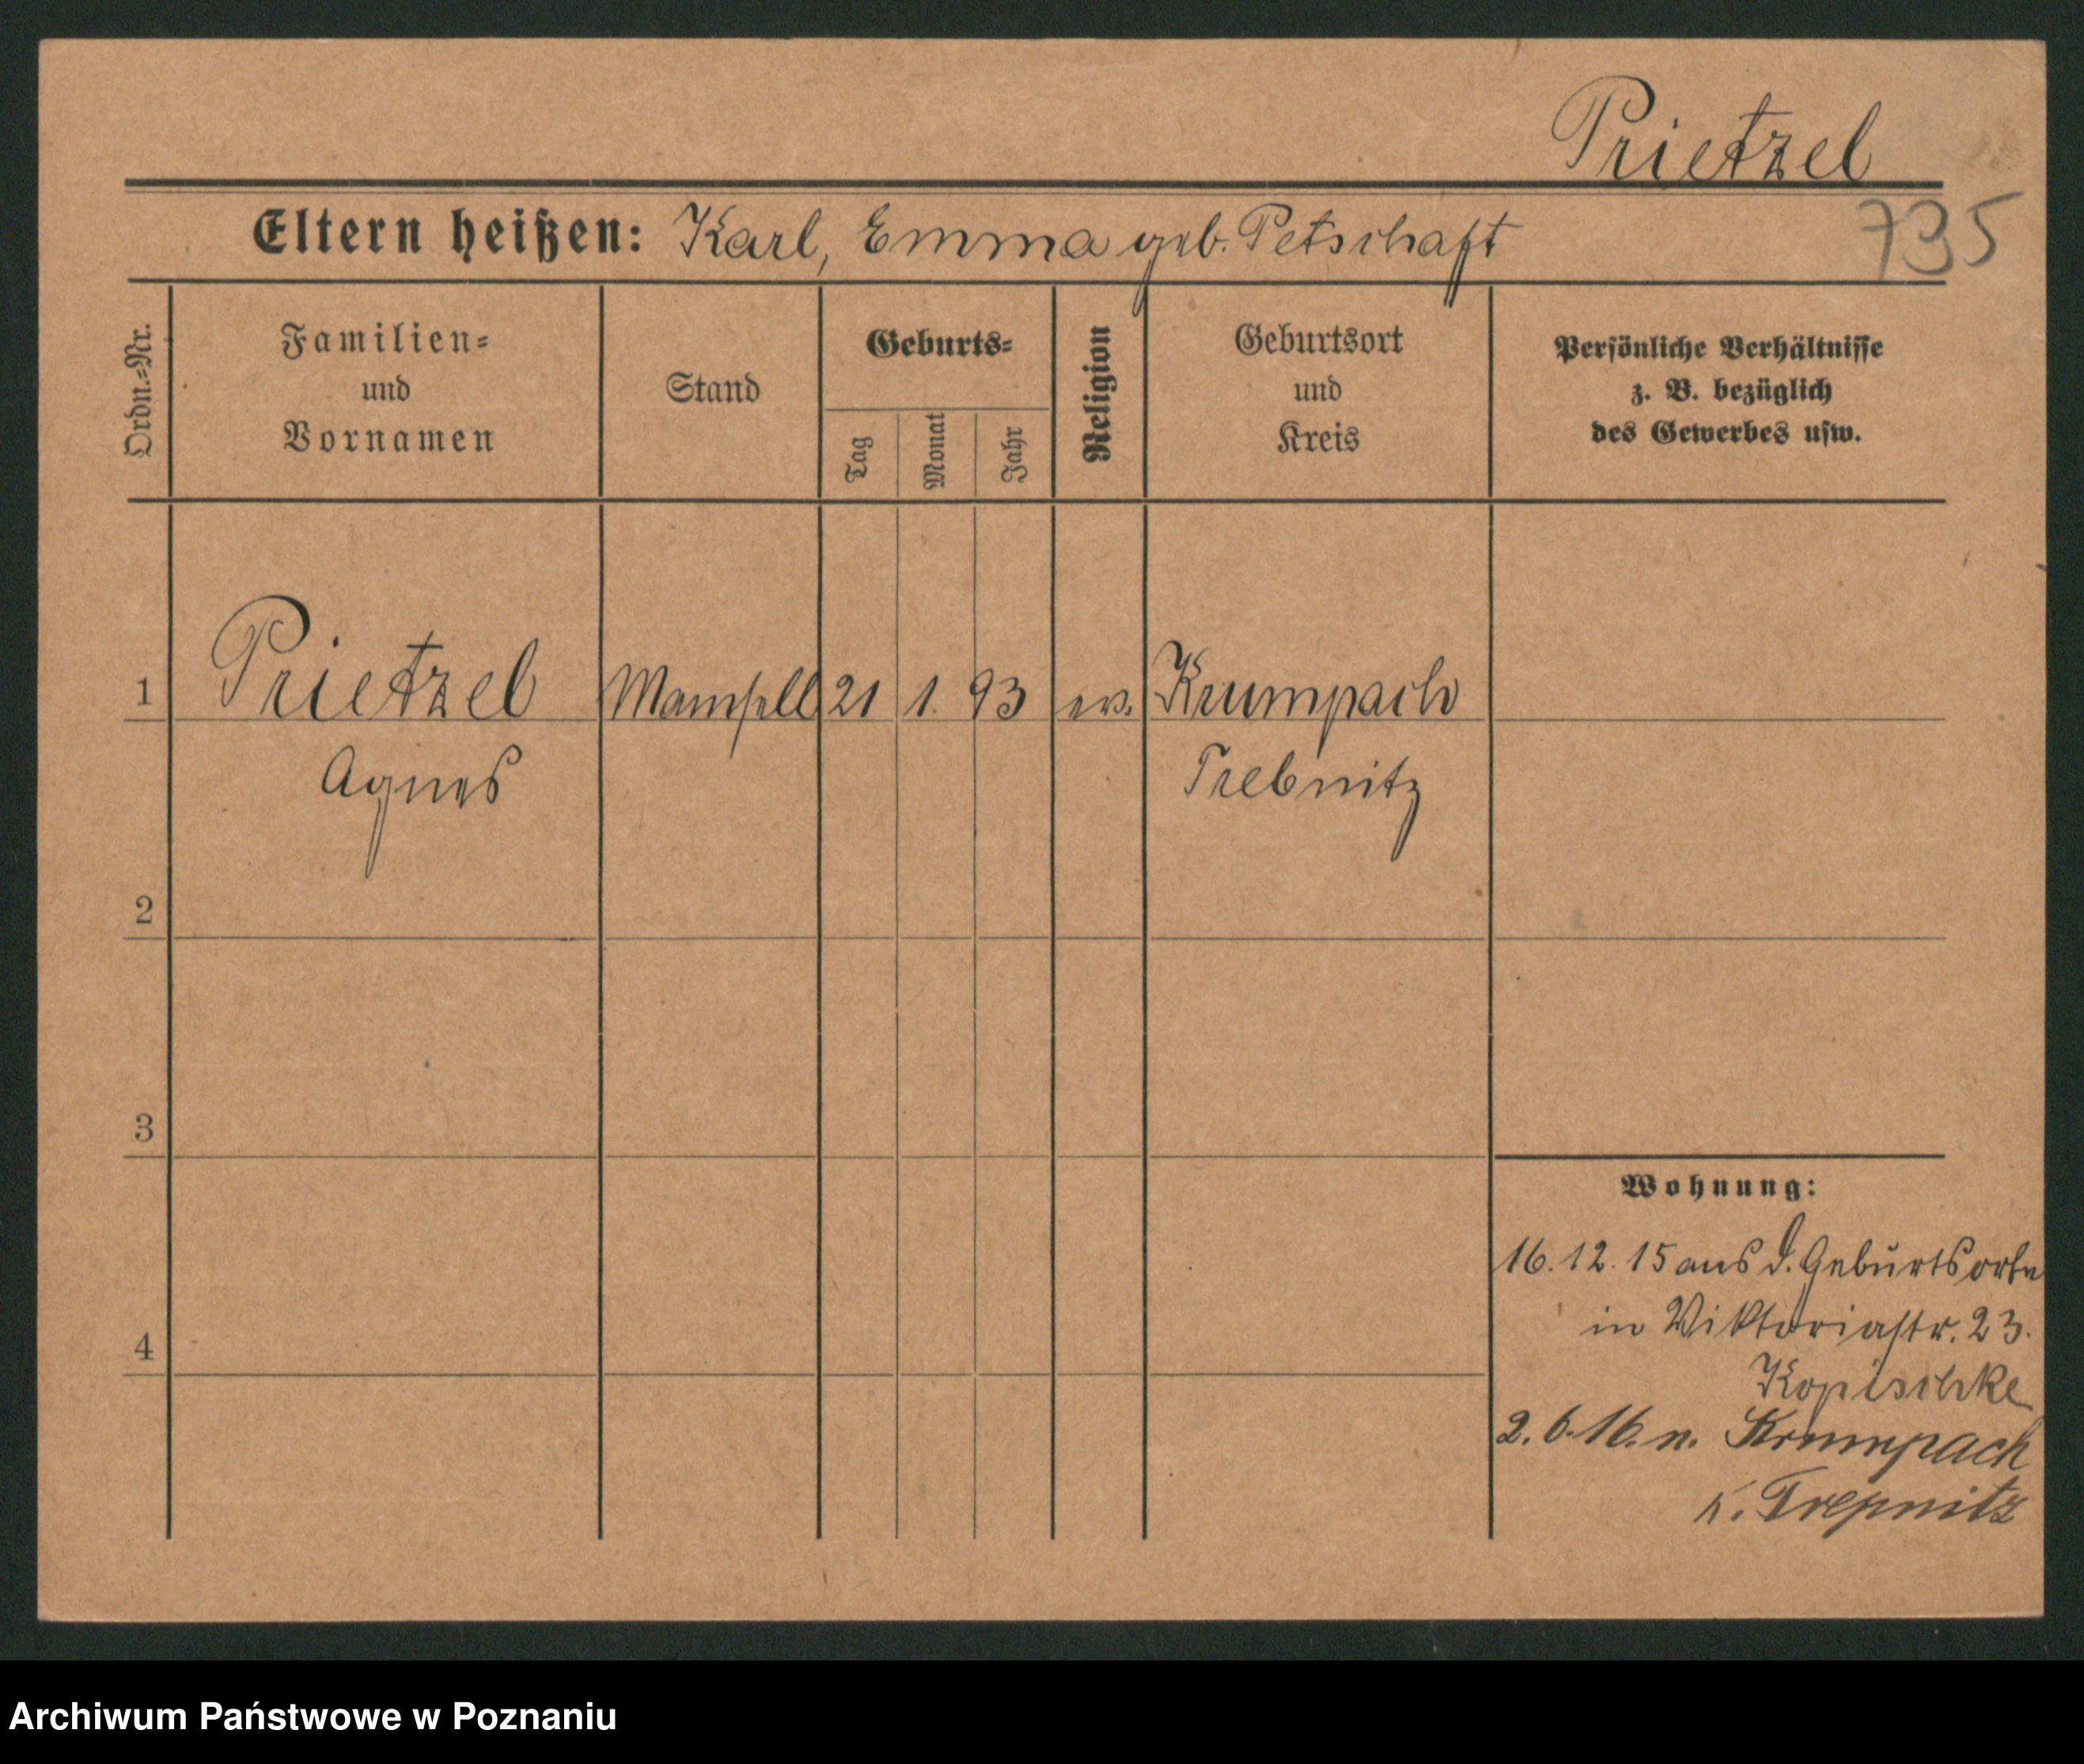 Prietzel
Eltern heißen: Karl, Emma geb. Petschaft
735
Ordn.=Nr.
Familien=
und
Vornamen
Stand
Geburts=
Tag
Monat
Jahr
Religion
Geburtsort
und
Kreis
Persönliche Verhältnisse
z. B. bezüglich
des Gewerbes usw.
1 Prietzel Mamsell 21 1. 93 ev. Krumpach
Agnes Trebnitz
2
3
Wohnung:
16.12.15 aus d. Geburtsorte
in Viktoriastr. 23.
4
Kopischke
2.6.16. n. Krumpach
K. Trepnitz
Archiwum Państwowe w Poznaniu